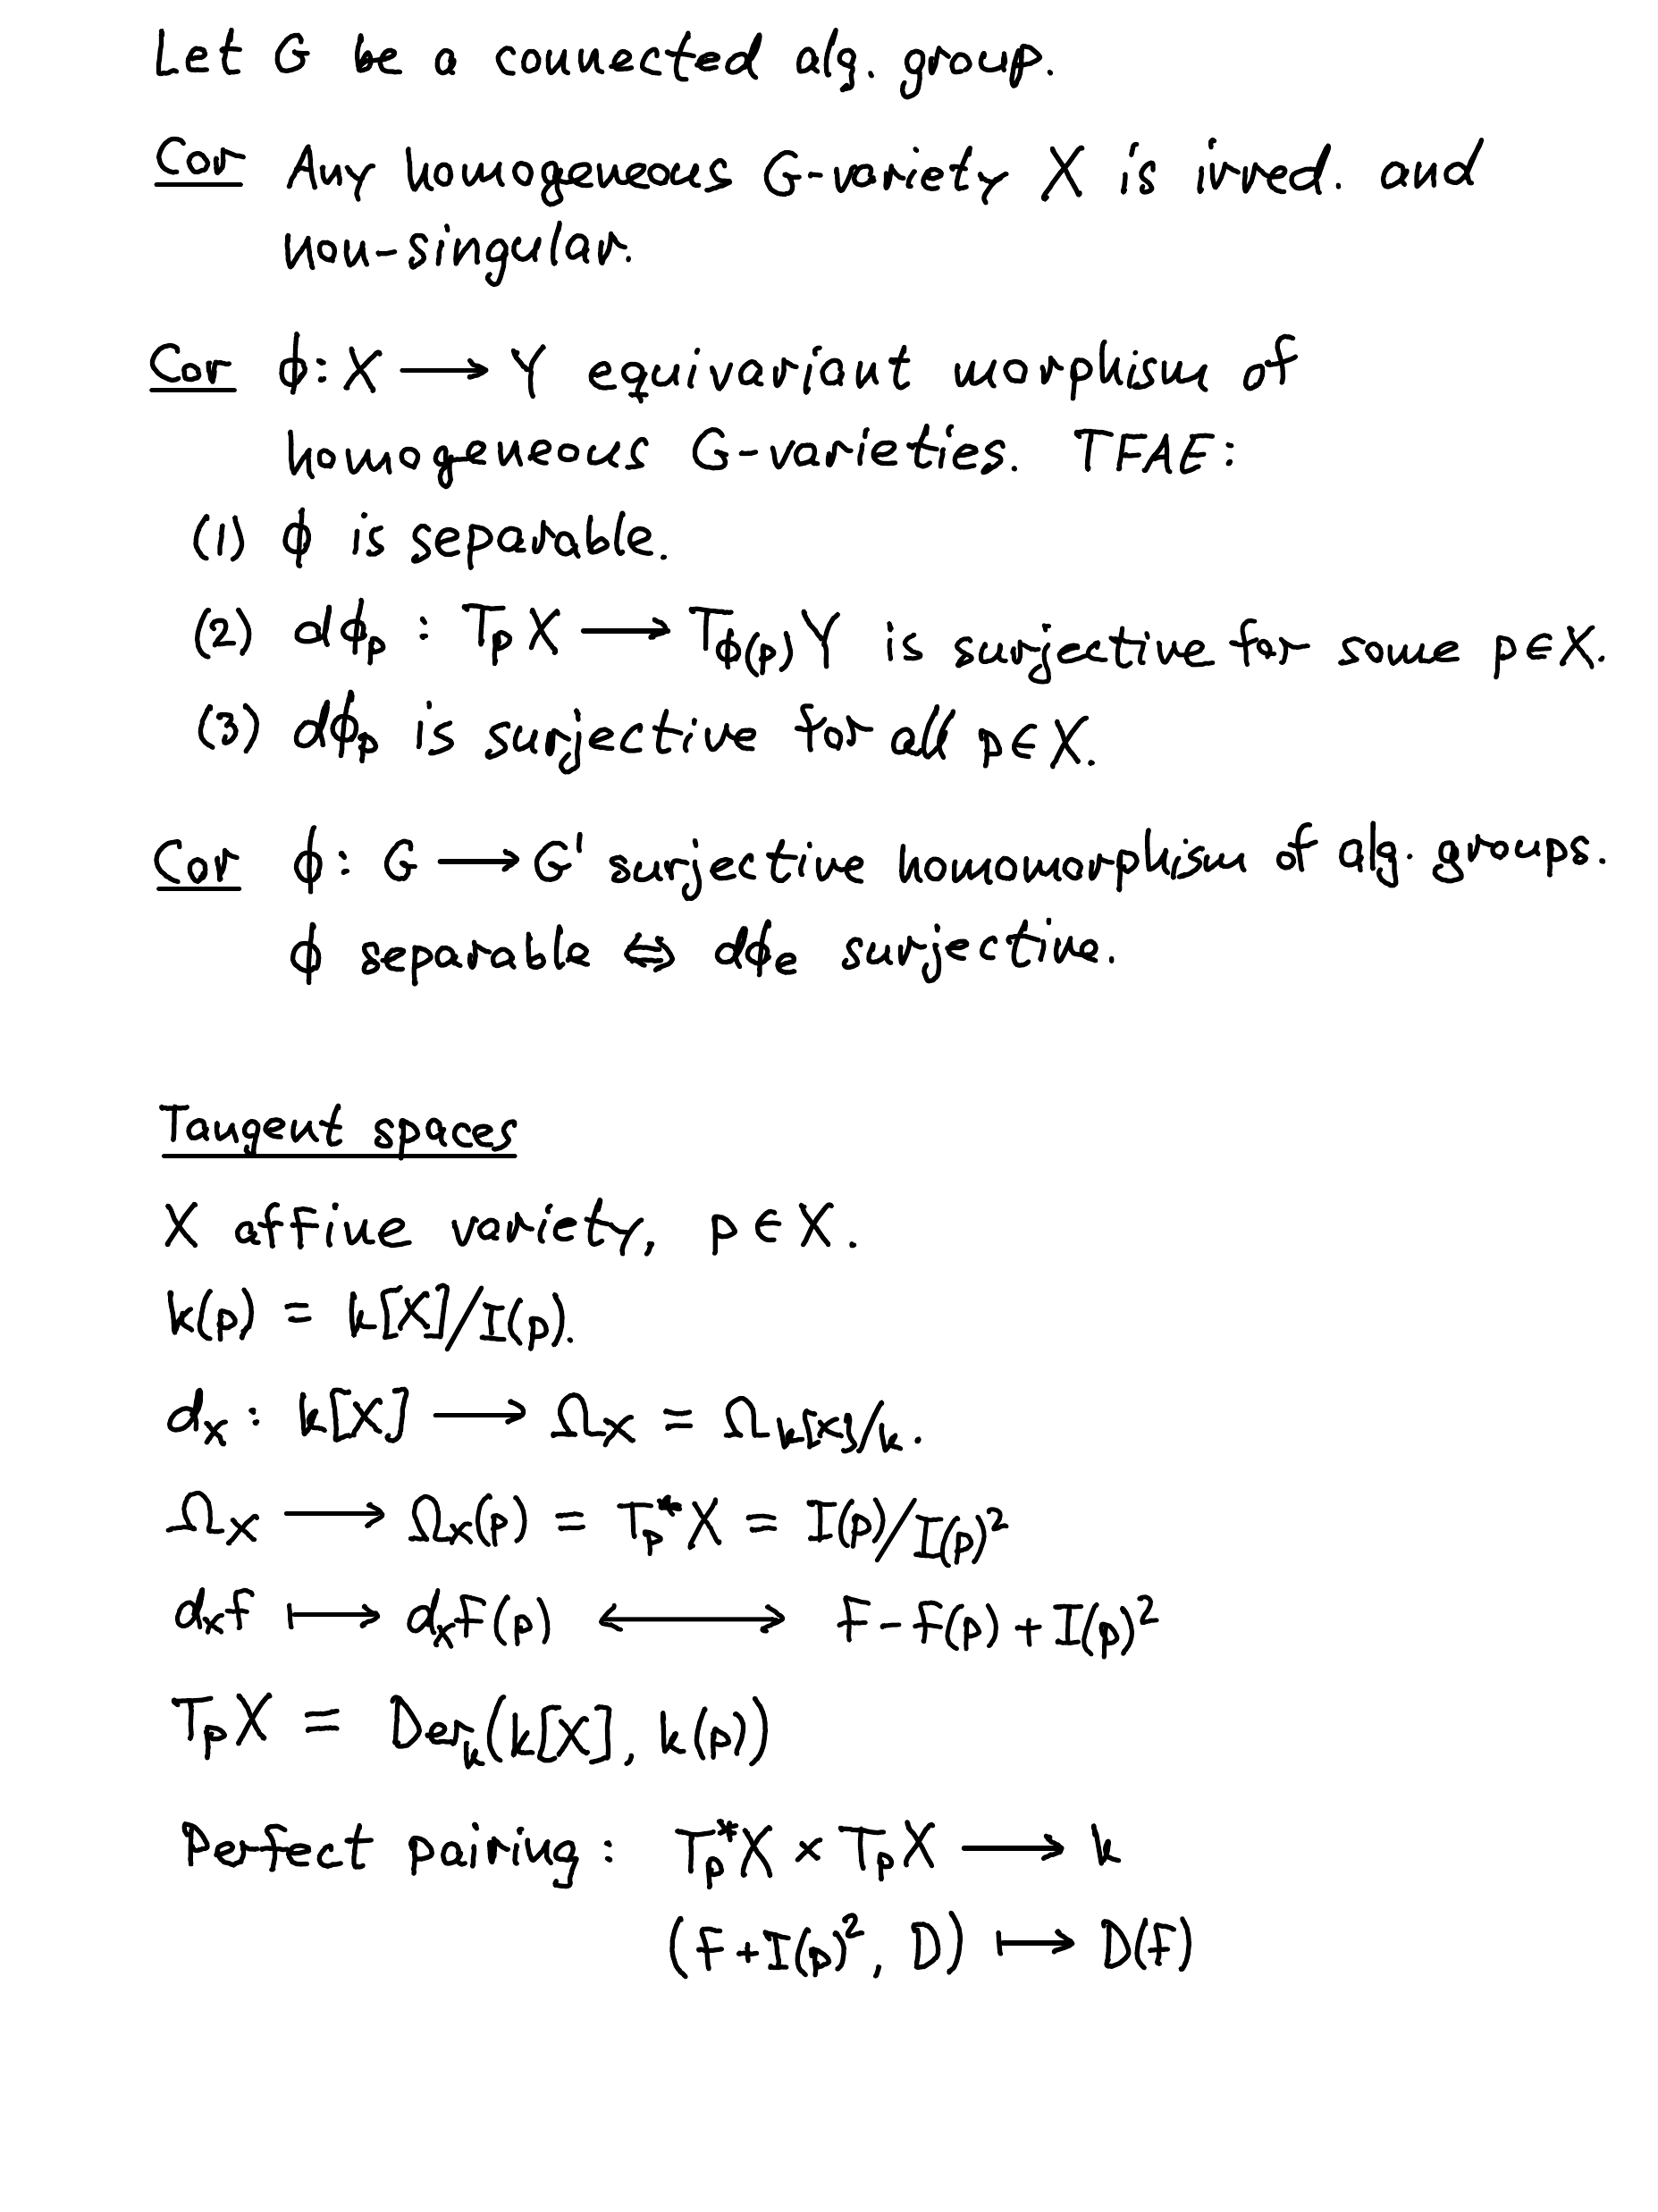 Let G be a connected alg. group.
Cor Any homogeneous G-variety X is irred. and
non-singular.
Cor ϕ: X ⟶ Y equivariant morphism of
homogeneous G-varieties. TFAE:
(1) ϕ is separable.
(2) dϕ_p : T_p X ⟶ T_{ϕ(p)} Y is surjective for some p ∈ X.
(3) dϕ_p is surjective for all p ∈ X.
Cor ϕ: G ⟶ G' surjective homomorphism of alg. groups.
ϕ separable ⇔ dϕ_e surjective.
Tangent spaces
X affine variety, p ∈ X.
k(p) = k[X]/I(p).
d_X : k[X] ⟶ Ω_X = Ω_{k[X]/k}.
Ω_X ⟶ Ω_X(p) = T_p^* X = I(p)/I(p)^2
d_X f ⟼ d_X f(p) ⟷ f - f(p) + I(p)^2
T_p X = Der_k(k[X], k(p))
Perfect pairing : T_p^* X × T_p X ⟶ k
(f + I(p)^2, D) ⟼ D(f)